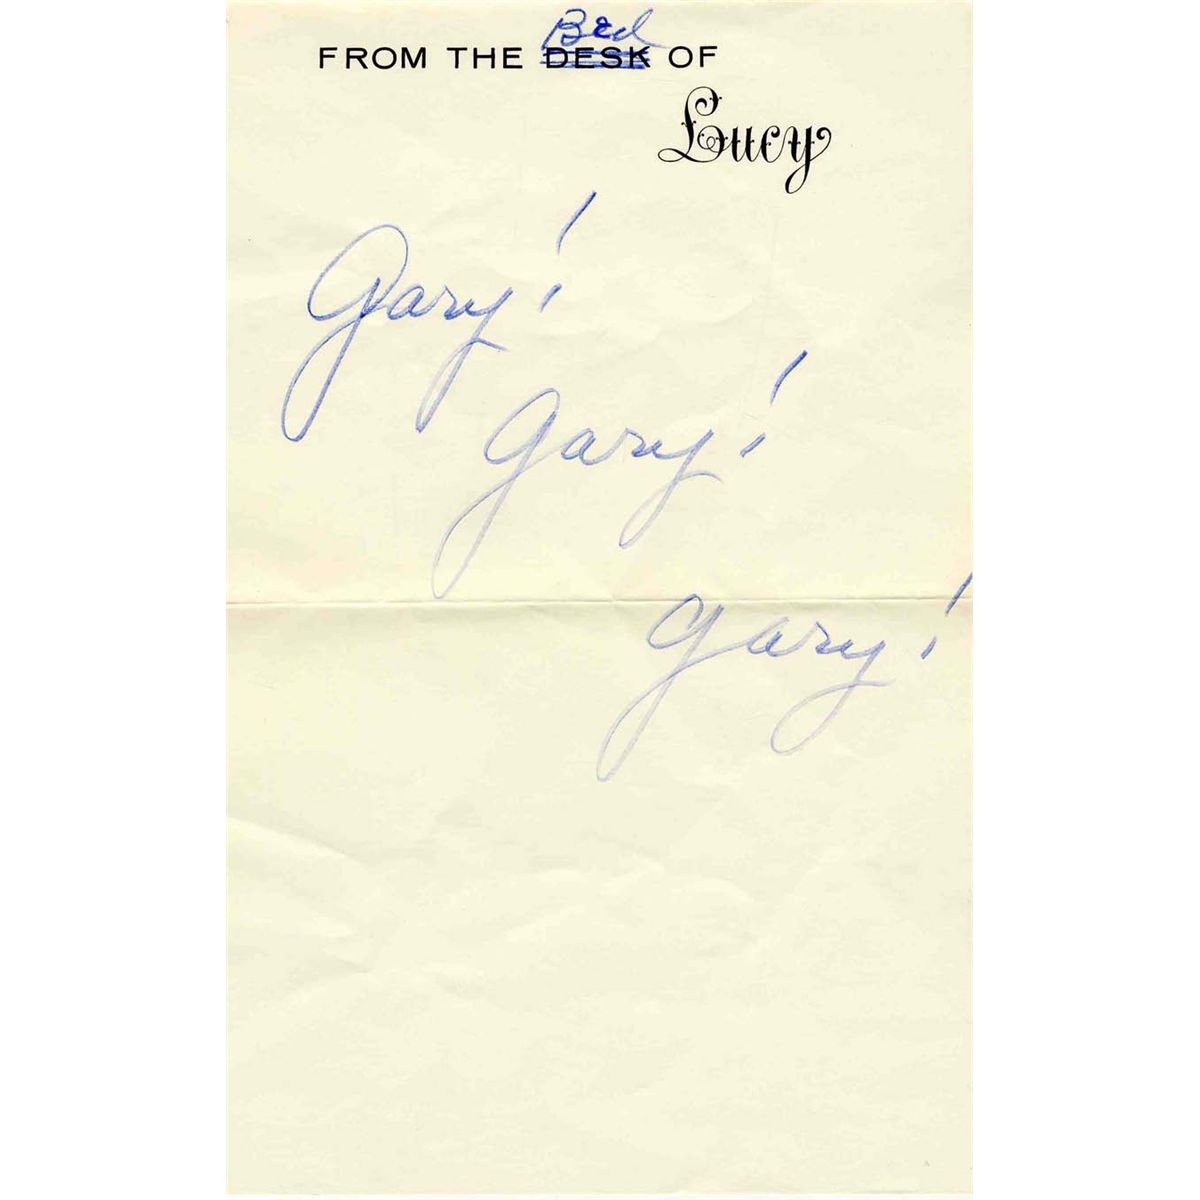 Bed
FROM THE DESK OF
Lucy
Gary!
Gary!
Gary!